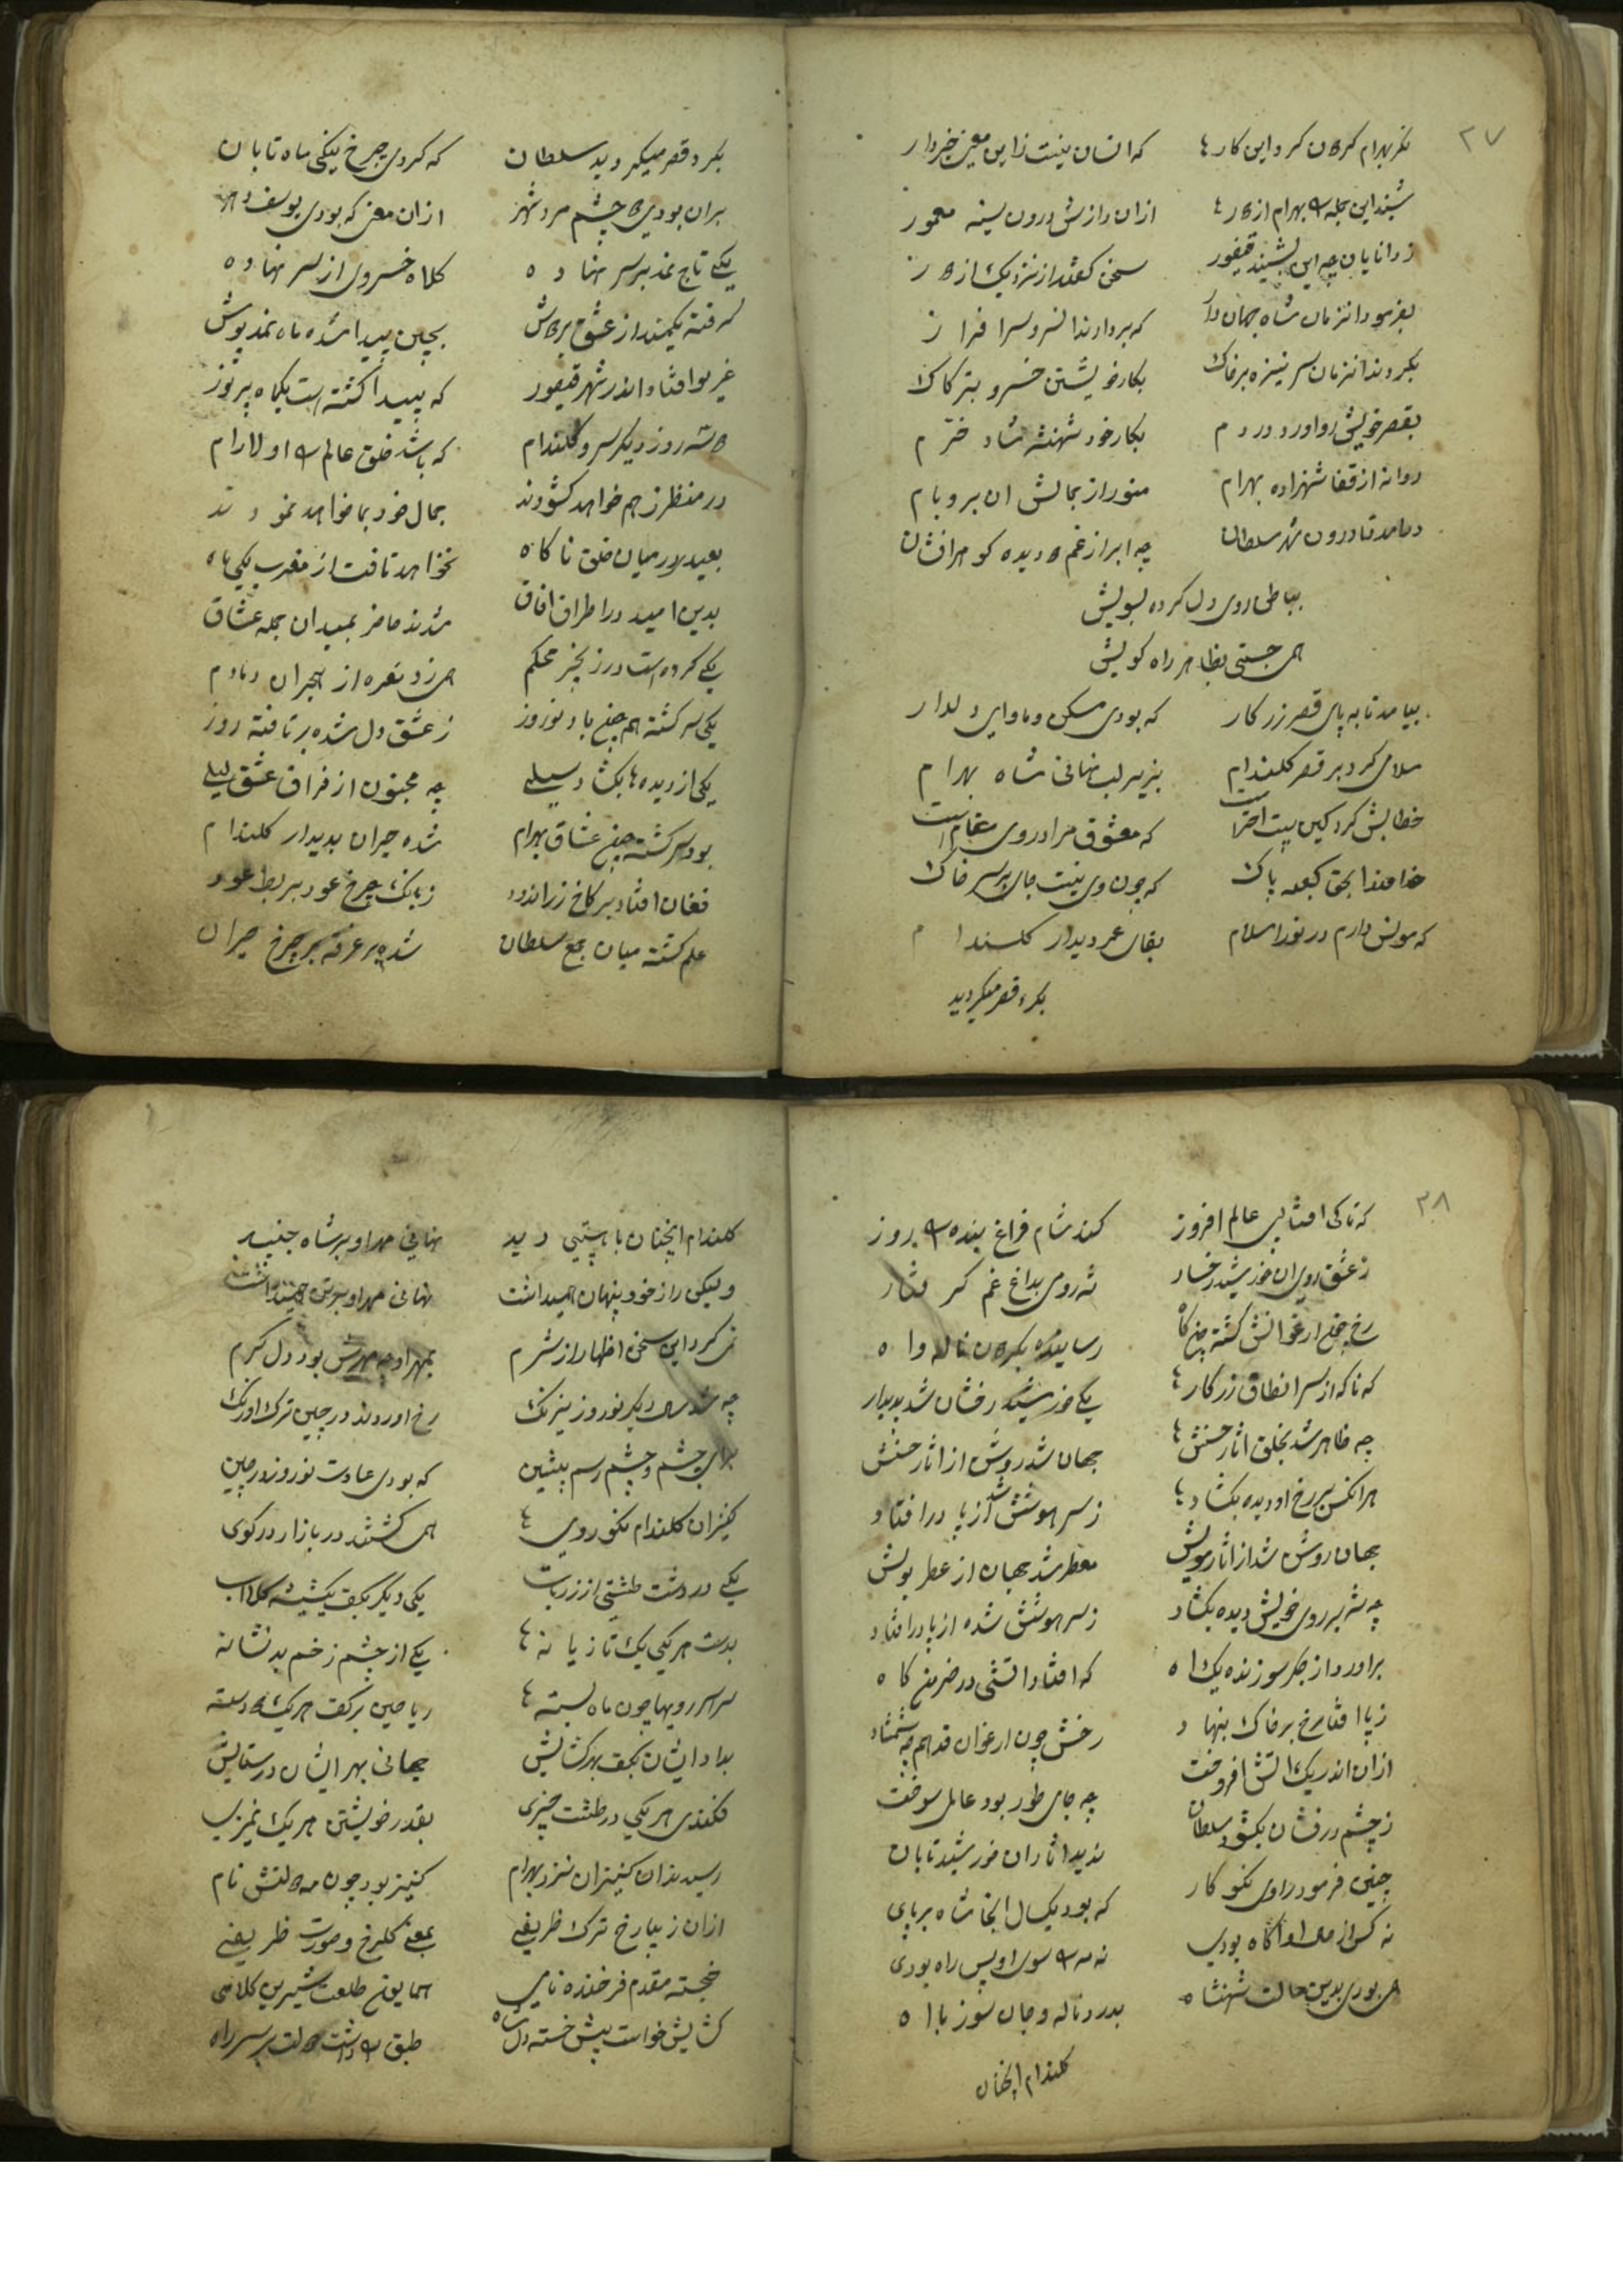 ۲۷
مگر بهرام کرد این کارها که انسان نیست زاین معنی خبردار
شنید این جمله بهرام از ازان رازش درون سینه معمور
ز دانایان چه این بشنید قیفور سخن گفتند از نزدیک از
بفرمود انزمان شاه جهاندار که بردارند انسر و سرافراز
بکردند انزمان سر نیزه بر خاک بکار خویشتن خسرو بتر کاک
بقصر خویش رو اورد در دم بکار خود شهنشه شاد خرم
روانه از قفا شهزاده بهرام منور از جمالش ان بر و بام
درامد تا درون شهر سلطان چه ابر از غم دیده گوهر افشان
بباطن روی دل کرده بسویش
همی جستی بظاهر راه کویش
بیامد تا به پای قصر زرکار که بودی مسکن و ماوای دلدار
سلامی کرد بر قصر گلندام بزیر لب نهانی شاه بهرام
خطابش کرد کین بیت احترا است که معشوق مرا در وی مقام است
خداوندا بحق کعبه پاک که چون وی نیست جای بر سر خاک
که مونس دارم در نور اسلام بقای عمر دیدار گلندام
بکرد قصر میگردید
بکرد قصر میگردید سلطان که کردی چرخ یکی ماه تابان
بران بودی چشم مردم شهر ازان معنی که بودی یوسف دهر
یکی تاج نمد بر سر نهاده کلاه خسروی از سر نهاده
گرفته یکمند از عشق بر دوش بچین پیدا شده ماه نمدپوش
غریو افتاد اندر شهر قیفور که پیدا گشته است یکماه پر نور
شه روز دیگر سرو گلندام که باشد خلق عالم او دلارام
در منظر ز هم خواهد گشودند جمال خود بما خواهد نمودند
بعید در میان خلق ناگاه نخواهد تافت از مغرب یکی ماه
بدین امید در اطراف افاق شدند حاضر بمیدان جمله عشاق
یکی کرده است در زنجیر محکم همی زد نعره از هجران دمادم
یکی سرگشته همچون باد نوروز ز عشق دل شده بر تافته روز
یکی از دیده‌ها بگشاد سیلی چه مجنون از فراق عشق لیلی
بود سرگشته چون عشاق بهرام شده حیران بدیدار گلندام
فغان افتاد بر کاخ زر اندود ز بانک چرخ عود بربط عود
علم گشته میان جمع سلطان شده بر غرفه بر چرخ حیران
۲۸
که تا کی افتابی عالم افروز کند شام فراغ بنده روز
ز عشق روی ان خورشید رخسار شه رومی بداغ غم گرفتار
رخ چون ارغوانش گشته چون کاه رسانیده بگردون ناله و اه
که ناگه از سر انطاق زرکار یکی خورشید رخشان شد پدیدار
چه ظاهر شد بخلق اثار حسنش جهان شد روشن از اثار حسنش
هر انکس بر رخ او دیده بگشاد ز سر هوشش شد از پا در افتاد
جهان روشن شد از اثار مویش معطر شد جهان از عطر بویش
چه شه بر روی خویش دیده بگشاد ز سر هوشش شده از پا در افتاد
براورد از جگر سوزنده یک اه که افتاد اتشی در خرمن کاه
ز پا افتاد رخ بر خاک بنهاد رخش چون ارغوان قد همچه شمشاد
ازان اندر یک اتش افروخت چه جای طور بود عالم سوخت
ز چشم درفشان بگشود سلطان ندید اثار ان خورشید تابان
چنین فرمود راوی نکوکار که بود یکسال انجا شاه برپای
نه کس از حال او اگاه بودی نه مه سوی او پس راه بودی
همی بودی بدین حالت شهنشاه بدرد ناله و جان سوز با اه
گلندام انچنان
گلندام انچنان با هستی دید نهانی مهر او بر شاه جنبید
ولیکن راز خود پنهان همیداشت نهانی مهر او بر همیداشت
نمی کرد این سخن اظهار از شرم بمهر او چه مهرش بود دل گرم
چه شد سال دیگر نوروز نیرنک رخ اوردند در چین ترک اورنک
برای چشم و چشم رسم پیشین که بودی عادت نوروز در چین
کنیزان گلندام نکوروی همی گشتند در بازار در کوی
یکی در دشت طشتی از زر ناب یکی دیگر بکف یکشیشه گلاب
بدست هر یکی یک تازیانه یکی از چشم زخم بد نشانه
سراسر رویها چون ماه بسته ریاحین بر کف هر یک دسته
بداد ایشان بکف بهر گشایش جهانی بهر ایشان در ستایش
فکندی هر یکی در طشت چیزی بقدر خویشتن هر یک تمیزی
رسیدند ان کنیزان نزد بهرام کنیز بود چون مه دولتش نام
ازان زیبا رخ ترک ظریفی بمعنی گلرخ و صورت ظریفی
خجسته مقدم فرخنده نامی همایون طلعت شیرین کلامی
گشایش خواست پیش خسته دل شاه طبق داشت دولت بر سر راه